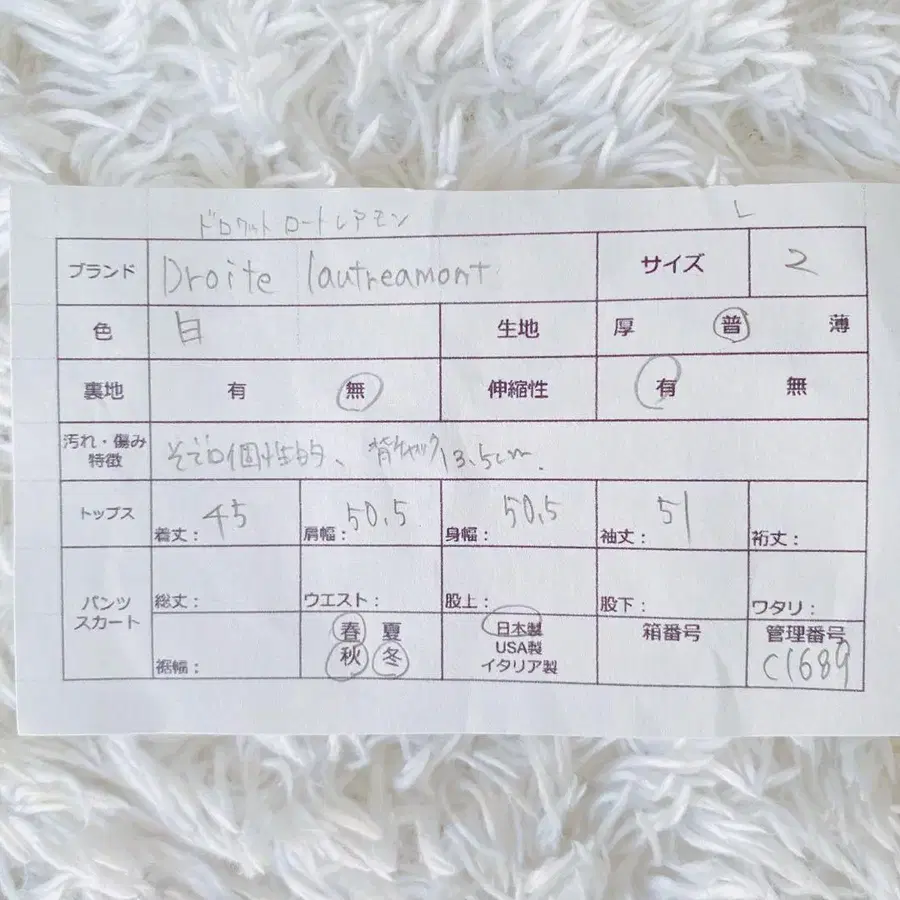 ドロワット ロートレアモン L
ブランド Droite lautreamont サイズ 2
色 白 生地 厚 普 薄
裏地 有 無 伸縮性 有 無
汚れ・傷み
特徴 そで口個性的、背チャック13.5cm.
トップス 着丈: 45 肩幅: 50.5 身幅: 50.5 袖丈: 51 裄丈:
パンツ
スカート
総丈: ウエスト: 股上: 股下: ワタリ:
裾幅:
春 夏
秋 冬
日本製
USA製
イタリア製
箱番号
管理番号
C1689